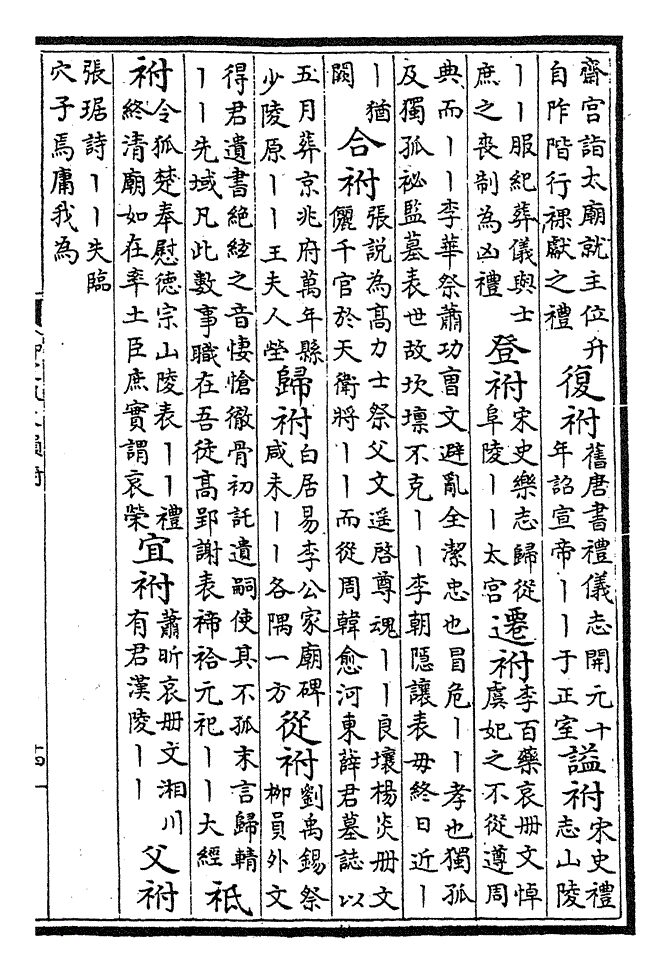 齋宫詣太廟就主位升自阼階行祼獻之禮 復祔 舊唐書禮儀志開元十年詔宣帝〡〡于正室 諡祔 宋史禮志山陵
〡〡服紀葬儀與士庶之喪制為凶禮 登祔 宋史樂志歸從阜陵〡〡太宫 遷祔 李百藥哀册文悼虞妃之不從遵周
典而〡〡李華祭蕭功曹文避亂全潔忠也冒危〡〡孝也獨孤及獨孤祕監墓表世故坎壈不克〡〡李朝隱讓表毋終日近〡
〡猶闕 合祔 張説為髙力士祭父文遥啓尊魂〡〡良壤楊炎册文儷千官於天衛將〡〡而從周韓愈河東薛君墓誌以
五月葬京兆府萬年縣少陵原〡〡王夫人塋 歸祔 白居易李公家廟碑咸未〡〡各隅一方 從祔 劉禹錫祭栁員外文
得君遺書絶絃之音悽愴徹骨初託遺嗣使其不孤末言歸輤〡〡先域凡此數事職在吾徒髙郢謝表禘祫元祀〡〡大經 祗
祔 令狐楚奉慰徳宗山陵表〡〡禮終清廟如在率土臣庶實謂哀榮 宜祔 蕭昕哀册文湘川有君漢陵〡〡 父祔
張琚詩〡〡失臨穴子焉庸我為